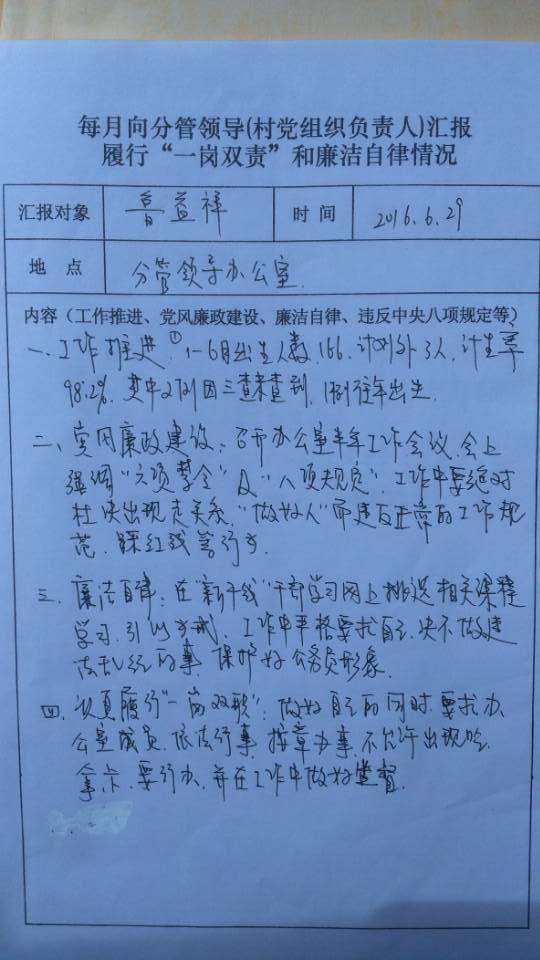 每月向分管领导(村党组织负责人)汇报
履行“一岗双责”和廉洁自律情况
汇报对象 鲁益祥 时间 2016.6.29
地点 分管领导办公室.
内容（工作推进、党风廉政建设、廉洁自律、违反中央八项规定等）
一、工作推进:①1-6月出生人数166.计划外3人.计生率
98.2%.其中2例因三查未查到,1例往年出生.
二、党风廉政建设:召开办公室半年工作会议.会上
强调“六项禁令”及“八项规定”.工作中要绝对
杜决出现走关系,“做好人”而违反正常的工作规
范.踩红线等行为.
三、廉洁自律:在“新干线”干部学习网上挑选相关课程
学习.引以为戒.工作中严格要求自己.决不做违
法乱纪的事.保护好公务员形象.
四、认真履行“一岗双职”:做好自己的同时.要求办
公室成员.依法行事.按章办事.不允许出现吃.
拿.卡.要行为.并在工作中做好监督.